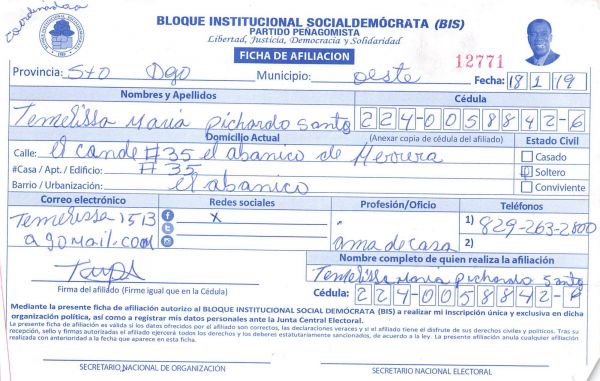 Coordinadora
BLOQUE INSTITUCIONAL SOCIALDEMÓCRATA (BIS)
PARTIDO PEÑAGOMISTA
Libertad, Justicia, Democracia y Solidaridad
FICHA DE AFILIACION
12771
Provincia: Sto Dgo Municipio: oeste Fecha: 18 1 19
Nombres y Apellidos Cédula
Temelissa Maria Pichardo Santo 224-0058842-6
Domicilio Actual (Anexar copia de cédula del afiliado) Estado Civil
Calle: el cande #35 el abanico de Herrera Casado
#Casa / Apt. / Edificio: #35 Soltero
Barrio / Urbanización: el abanico Conviviente
Correo electrónico Redes sociales Profesión/Oficio Teléfonos
Temelissa1513 X 1) 829-263-2800
agomail.com ama de casa 2)
Nombre completo de quien realiza la afiliación
Temelissa Maria Pichardo Santo
Firma del afiliado (Firme igual que en la Cédula) Cédula: 224-0058842-
Mediante la presente ficha de afiliación autorizo al BLOQUE INSTITUCIONAL SOCIAL DEMÓCRATA (BIS) a realizar mi inscripción única y exclusiva en dicha
organización política, así como a registrar mis datos personales ante la Junta Central Electoral.
La presente ficha de afiliación es válida si los datos ofrecidos por el afiliado son correctos, las declaraciones veraces y si el afiliado tiene el disfrute de sus derechos civiles y políticos. Tras su
recepción, sello y firmas autorizadas el afiliado ejercerá todos los derechos y los deberes estatutariamente sancionados, de acuerdo a la ley. La presente afiliación anula cualquier afiliación
realizada con anterioridad a la fecha que aparece en esta ficha.
SECRETARIO NACIONAL DE ORGANIZACIÓN SECRETARIO NACIONAL ELECTORAL